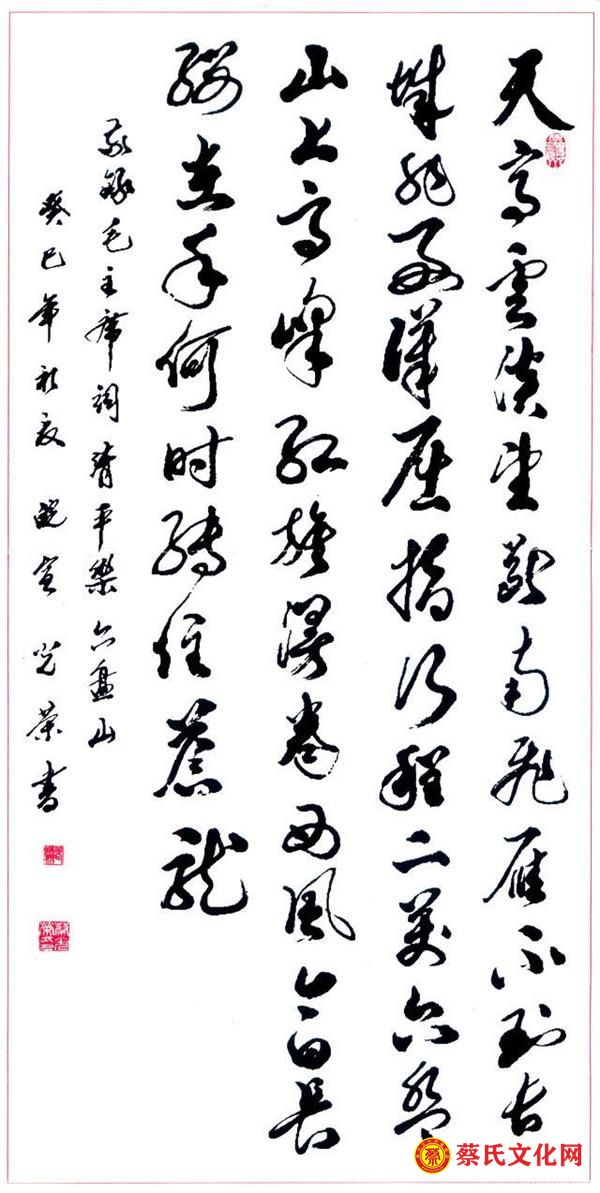 天高雲淡望断南飞雁不到长
城非好漢屈指行程二萬六盘
山上高峰红旗漫卷西风今日长
缨在手何时缚住蒼龙
敬録毛主席词清平樂六盘山
癸巳年初夏 光荣书
蔡氏文化网